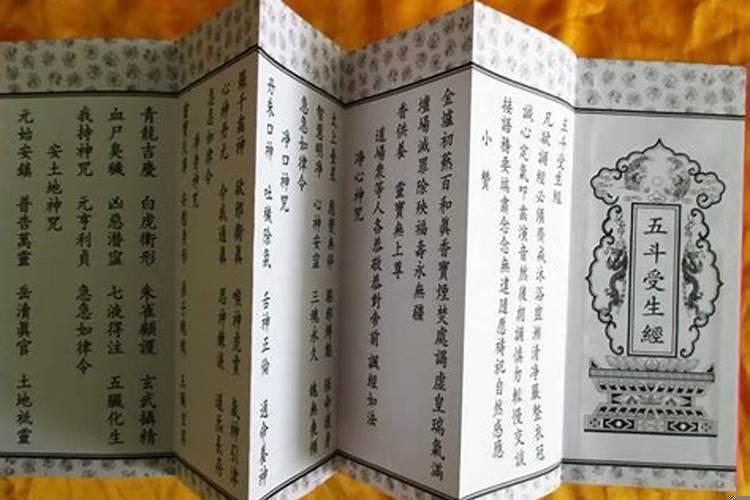 五斗受生經
五斗受生經
凡欲誦經必須齋戒沐浴盥漱清淨嚴整衣冠
誠心定氣叩齒演音然後朗誦慎勿輕慢交談
接語務要端肅念念無違隨應禱祀自然感應
小贊
金爐初爇百和眞香寶煙焚處謁虛皇瑞氣滿
壇場滅罪除殃福壽永無疆
香供養 靈寶無上尊
道場衆等人各恭敬恭對帝前 誦經如法
淨心神咒
太上台星 應變無停 驅邪縛魅 保命護身
智慧明淨 心神安寧 三魂永久 魄無喪傾
急急如律令
淨口神咒
丹朱口神 吐穢除氛 舌神正倫 通命養神
羅千齒神 却邪衛眞 喉神虎賁 氣神引津
心神丹元 令我通眞 思神鍊液 道炁長存
急急如律令
淨身神咒
靈寶天尊 安慰身形 弟子魂魄 五臟玄冥
青龍吉慶 白虎衛形 朱雀顧護 玄武攝精
血尸臭穢 凶惡潛寧 七液得注 五臟化生
我持神咒 元亨利貞 急急如律令
安土地神咒
元始安鎮 普告萬靈 岳清眞官 土地祗靈